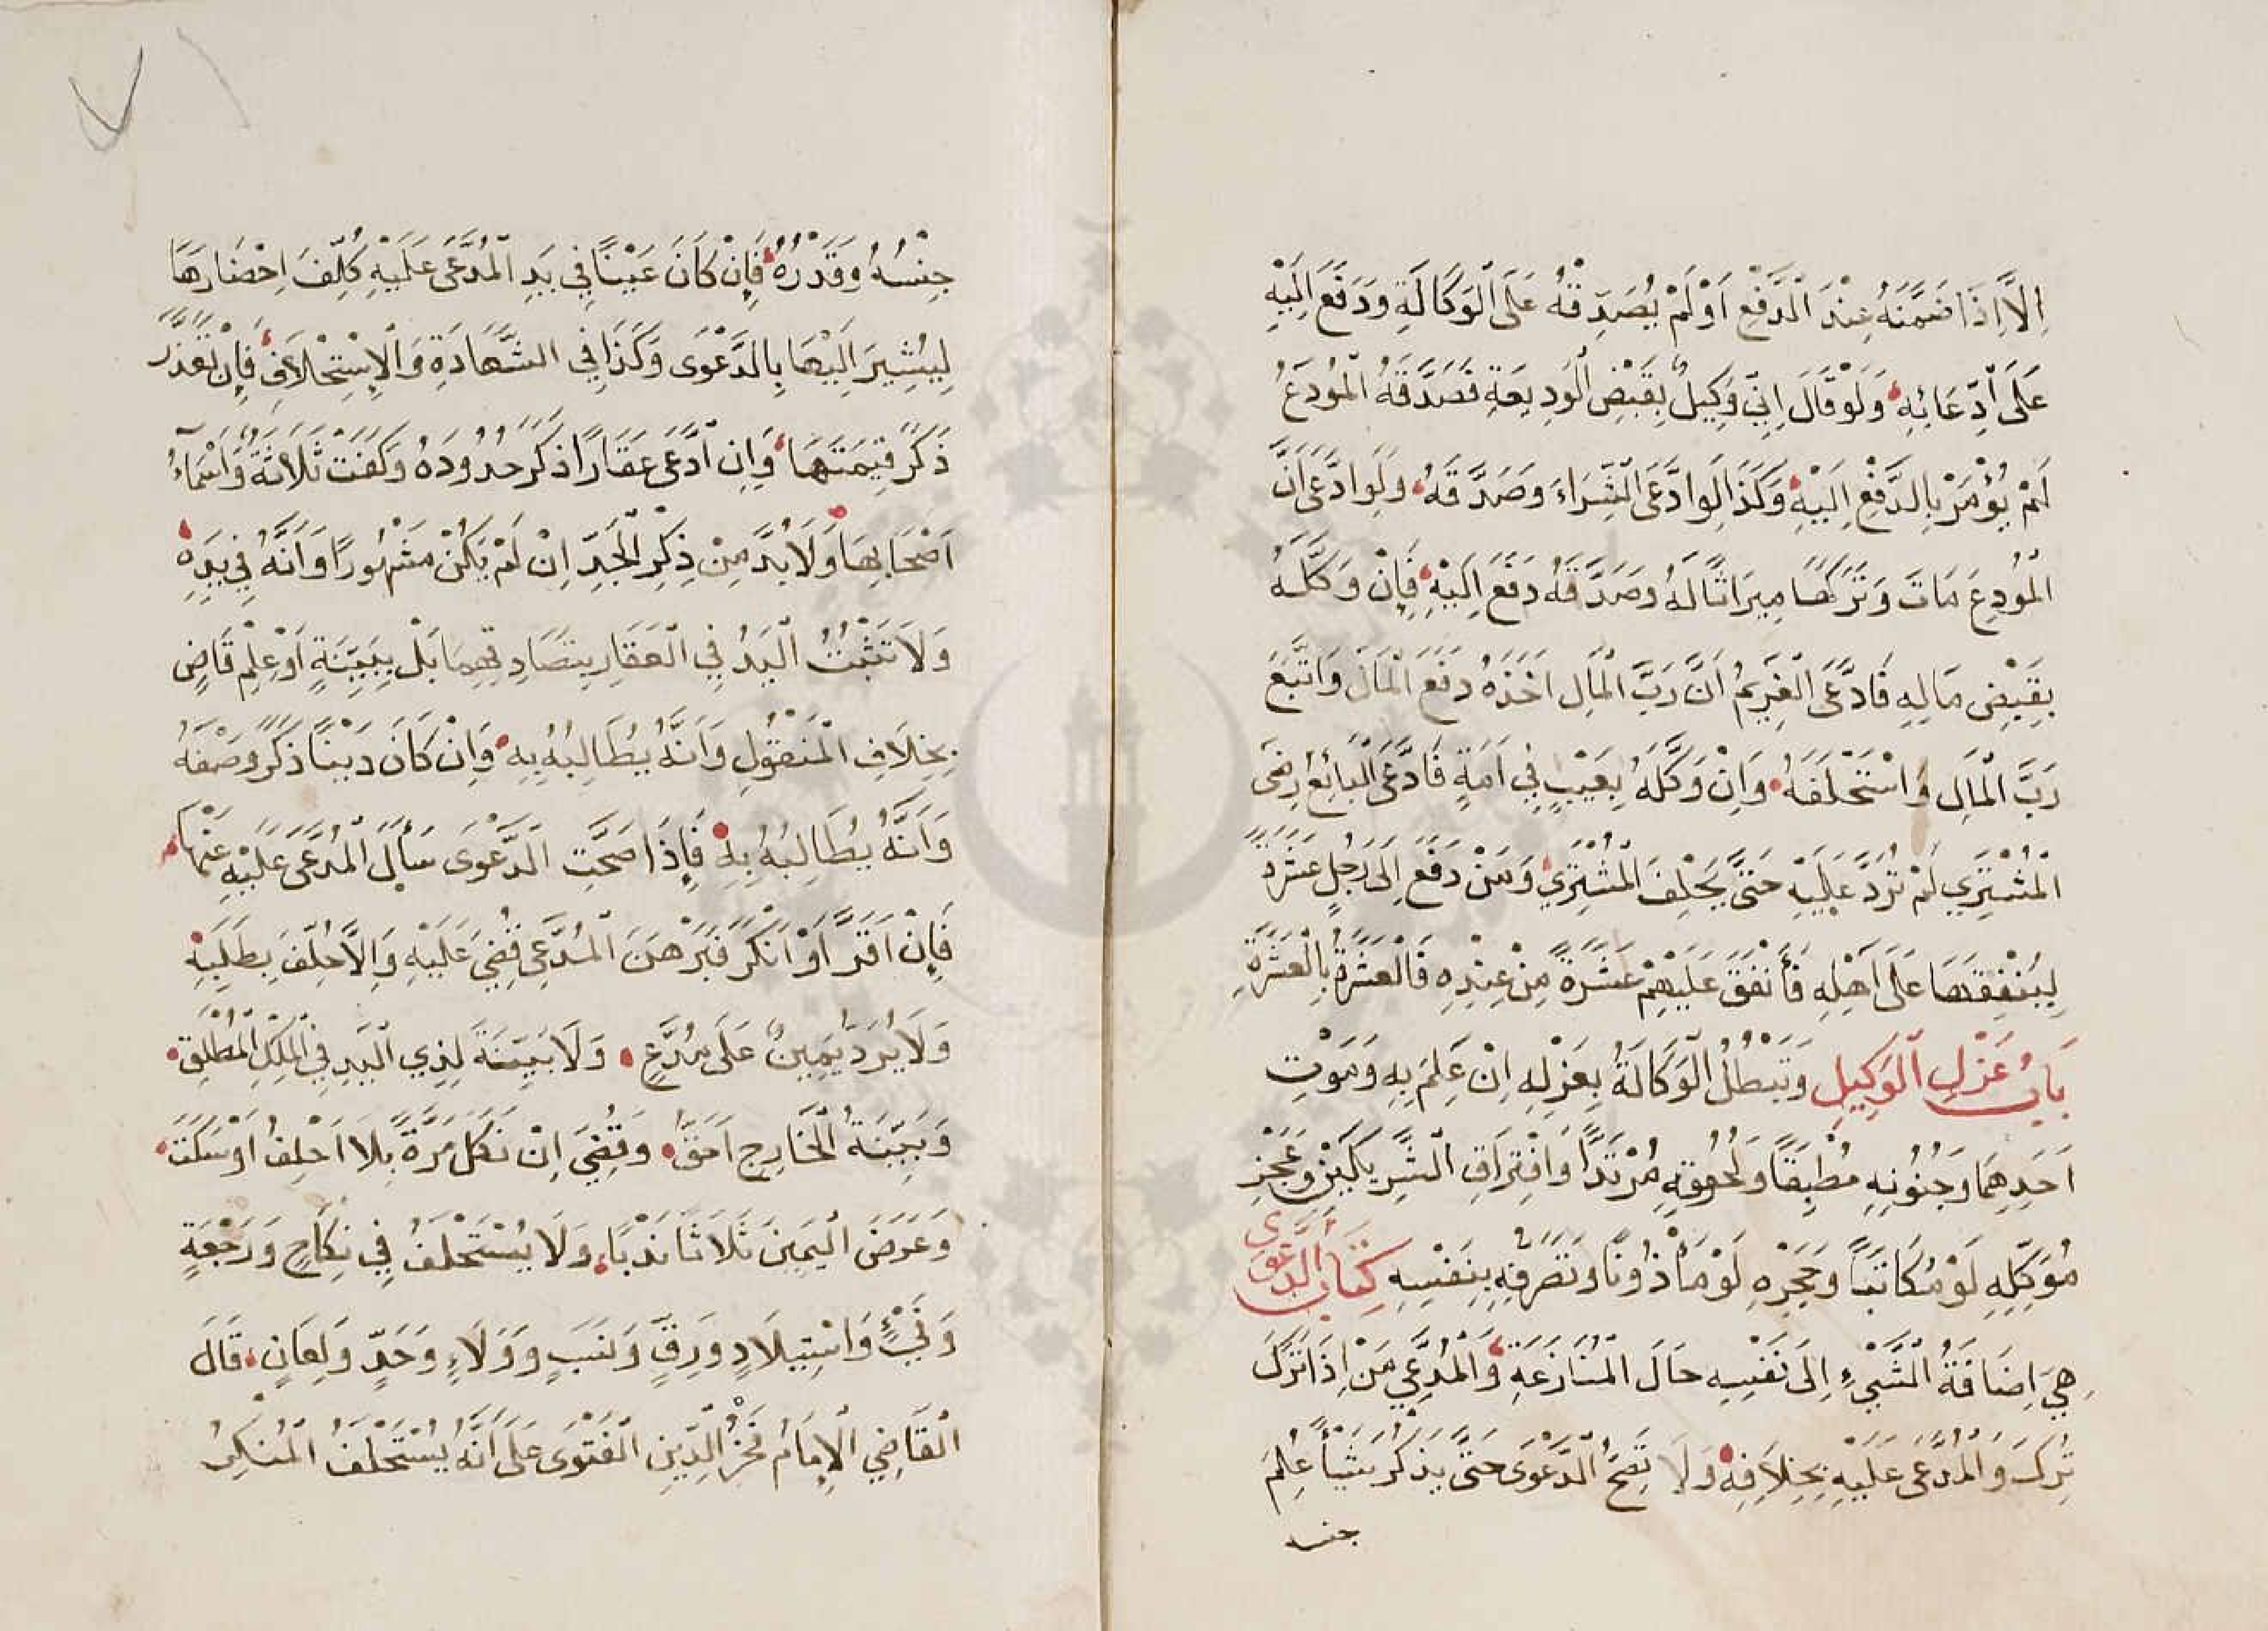 اِلَّا اِذَا ضَمَّنَهُ عِنْدَ الْدَّفْعِ اَوْ لَمْ يُصَدِّقْهُ عَلَى الْوَكَالَةِ وَدَفَعَ اِلَيْهِ
عَلَى اَدِّعَائِهِ وَلَوْ قَالَ اِنِّي وَكِيلٌ بِقَبْضِ الْوَدِيعَةِ فَصَدَّقَهُ الْمُودَعُ
لَمْ يُؤْمَرْ بِالدَّفْعِ اِلَيْهِ وَكَذَا لَوِ ادَّعَى الْشِّرَاءَ وَصَدَّقَهُ وَلَوِ ادَّعَى اَنَّ
الْمُودِعَ مَاتَ وَتَرَكَهَا مِيرَاثًا لَهُ وَصَدَّقَهُ دَفَعَ اِلَيْهِ فَاِنْ وَكَّلَهُ
بِقَبْضِ مَالِهِ فَادَّعَى الْغَرِيمُ اَنَّ رَبَّ الْمَالِ اَخَذَهُ دَفَعَ الْمَالَ وَاتَّبَعَ
رَبَّ الْمَالِ وَاسْتَحْلَفَهُ وَاِنْ وَكَّلَهُ بِعَيْبٍ فِي اَمَةٍ فَادَّعَى الْبَائِعُ رِضَى
الْمُشْتَرِي لَمْ تُرَدَّ عَلَيْهِ حَتَّى يَحْلِفَ الْمُشْتَرِي وَمَنْ دَفَعَ اِلَى رَجُلٍ عَشَرَةً
لِيُنْفِقَهَا عَلَى اَهْلِهِ فَأَنْفَقَ عَلَيْهِمْ عَشَرَةً مِنْ عِنْدِهِ فَالْعَشَرَةُ بِالْعَشَرَةِ
بَابُ عَزْلِ الْوَكِيلِ وَتَبْطُلُ الْوَكَالَةُ بِعَزْلِهِ اِنْ عَلِمَ بِهِ وَمَوْتِ
اَحَدِهِمَا وَجُنُونِهِ مُطْبِقًا وَلُحُوقِهِ مُرْتَدًّا وَافْتِرَاقِ الْشَّرِيكَيْنِ وَعَجْزِ
مُوَكِّلِهِ لَوْ مُكَاتَبًا وَحَجْرِهِ لَوْ مَأْذُونًا وَتَصَرُّفِهِ بِنَفْسِهِ كِتَابُ الْدَّعْوَى
هِيَ اِضَافَةُ الْشَّيْءِ اِلَى نَفْسِهِ حَالَ الْمُنَازَعَةِ وَالْمُدَّعِي مَنْ اِذَا تَرَكَ
تُرِكَ وَالْمُدَّعَى عَلَيْهِ بِخِلَافِهِ وَلَا تَصِحُّ الْدَّعْوَى حَتَّى يَذْكُرَ شَيْئًا عُلِمَ
جنسه
جِنْسُهُ وَقَدْرُهُ فَاِنْ كَانَ عَيْنًا فِي يَدِ الْمُدَّعَى عَلَيْهِ كُلِّفَ اِحْضَارَهَا
لِيُشِيرَ اِلَيْهَا بِالدَّعْوَى وَكَذَا فِي الشَّهَادَةِ وَالْاِسْتِحْلَافِ فَاِنْ تَعَذَّرَ
ذَكَرَ قِيمَتَهَا وَاِنِ ادَّعَى عَقَارًا ذَكَرَ حُدُودَهُ وَكَفَتْ ثَلَاثَةٌ وَاَسْمَاءُ
اَصْحَابِهَا وَلَا بُدَّ مِنْ ذِكْرِ الْجَدِّ اِنْ لَمْ يَكُنْ مَشْهُورًا وَاَنَّهُ فِي يَدِهِ
وَلَا تَثْبُتُ الْيَدُ فِي الْعَقَارِ بِتَصَادُقِهِمَا بَلْ بِبَيِّنَةٍ اَوْ عِلْمِ قَاضٍ
بِخِلَافِ الْمَنْقُولِ وَاَنَّهُ يُطَالِبُهُ بِهِ وَاِنْ كَانَ دَيْنًا ذَكَرَ وَصْفَهُ
وَاَنَّهُ يُطَالِبُهُ بِهِ فَاِذَا صَحَّتِ الدَّعْوَى سَأَلَ الْمُدَّعَى عَلَيْهِ عَنْهَا
فَاِنْ اَقَرَّ اَوْ اَنْكَرَ فَبَرْهَنَ الْمُدَّعِي قُضِيَ عَلَيْهِ وَاِلَّا حُلِّفَ بِطَلَبِهِ
وَلَا يُرَدُّ يَمِينٌ عَلَى مُدَّعٍ وَلَا بَيِّنَةَ لِذِي الْيَدِ فِي الْمِلْكِ الْمُطْلَقِ
وَبَيِّنَةُ الْخَارِجِ اَحَقُّ وَقُضِيَ اِنْ نَكَلَ مَرَّةً بِلَا اَحْلِفُ اَوْ سَكَتَ
وَعَرَضَ الْيَمِينَ ثَلَاثًا نَدْبًا وَلَا يُسْتَحْلَفُ فِي نِكَاحٍ وَرَجْعَةٍ
وَفَيْءٍ وَاسْتِيلَادٍ وَرِقٍّ وَنَسَبٍ وَوَلَاءٍ وَحَدٍّ وَلِعَانٍ قَالَ
الْقَاضِي الْاِمَامُ فَخْرُ الْدِّينِ الْفَتْوَى عَلَى اَنَّهُ يُسْتَحْلَفُ الْمُنْكِرُ